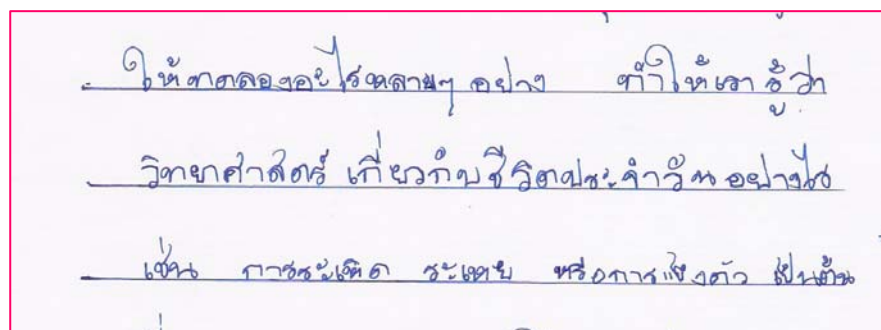 ให้ทดลองอะไรหลายๆ อย่าง ทำให้เรารู้ว่า
วิทยาศาสตร์ เกี่ยวกับชีวิตประจำวันอย่างไร
เช่น การระเหิด ระเหย หรือการแข็งตัว เป็นต้น